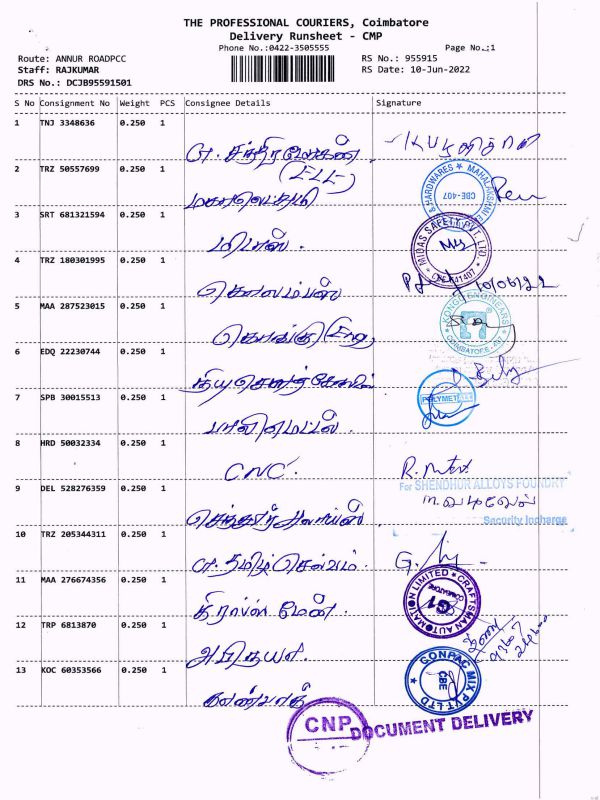 THE PROFESSIONAL COURIERS, Coimbatore
Delivery Runsheet - CMP
Phone No.:0422-3505555
Page No.:1
Route: ANNUR ROADPCC
RS No.: 955915
Staff: RAJKUMAR
RS Date: 10-Jun-2022
DRS No.: DCJB95591501
S No Consignment No Weight PCS Consignee Details Signature
1 TNJ 3348636 0.250 1
2 TRZ 50557699 0.250 1
& HARDWARES ★ MAHALAKSHMI
CBE-407
3 SRT 681321594 0.250 1
மிடாஸ்.
MIDAS SAFETY PVT. LTD.
CBE 641407
4 TRZ 180301995 0.250 1
கொலம்பஸ்
10/06/22
5 MAA 287523015 0.250 1
கொங்கு (Eng)
KONGU ENGINEERS
COIMBATORE
6 EDQ 22230744 0.250 1
7 SPB 30015513 0.250 1
பாலிமெட்டல்
POLYMET
8 HRD 50032334 0.250 1
CNC.
For SHENDHUR ALLOYS FOUNDRY
9 DEL 528276359 0.250 1
செந்தூர் அலாய்ஸ்
ம.வடிவேல்
Security Incharge
10 TRZ 205344311 0.250 1
தமிழ் செல்வம்.
11 MAA 276674356 0.250 1
கிராப்ஸ் மேன்.
CRAFTSMAN AUTOMATION LIMITED
G1
COIMBATORE
12 TRP 6813870 0.250 1
13 KOC 60353566 0.250 1
CONPAC MIX PVT LTD
CBE
கன்பாக்
CNP DOCUMENT DELIVERY